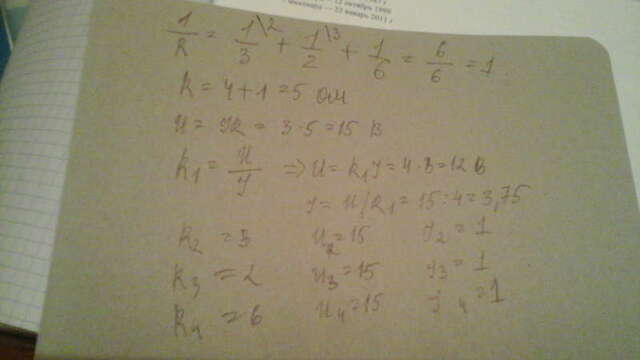 12 октябрь 1999
23 январь 2011 г
1/R = 1\2/3 + 1\3/2 + 1/6 = 6/6 = 1.
R = 4 + 1 = 5 ом
U = IR = 3·5 = 15 В
R₁ = U/I => U = R₁I = 4·В = 12 В
I = U/R₁ = 15:4 = 3,75
R₂ = 3 U₂ = 15 I₂ = 1
R₃ = 2 U₃ = 15 I₃ = 1
R₄ = 6 U₄ = 15 I₄ = 1